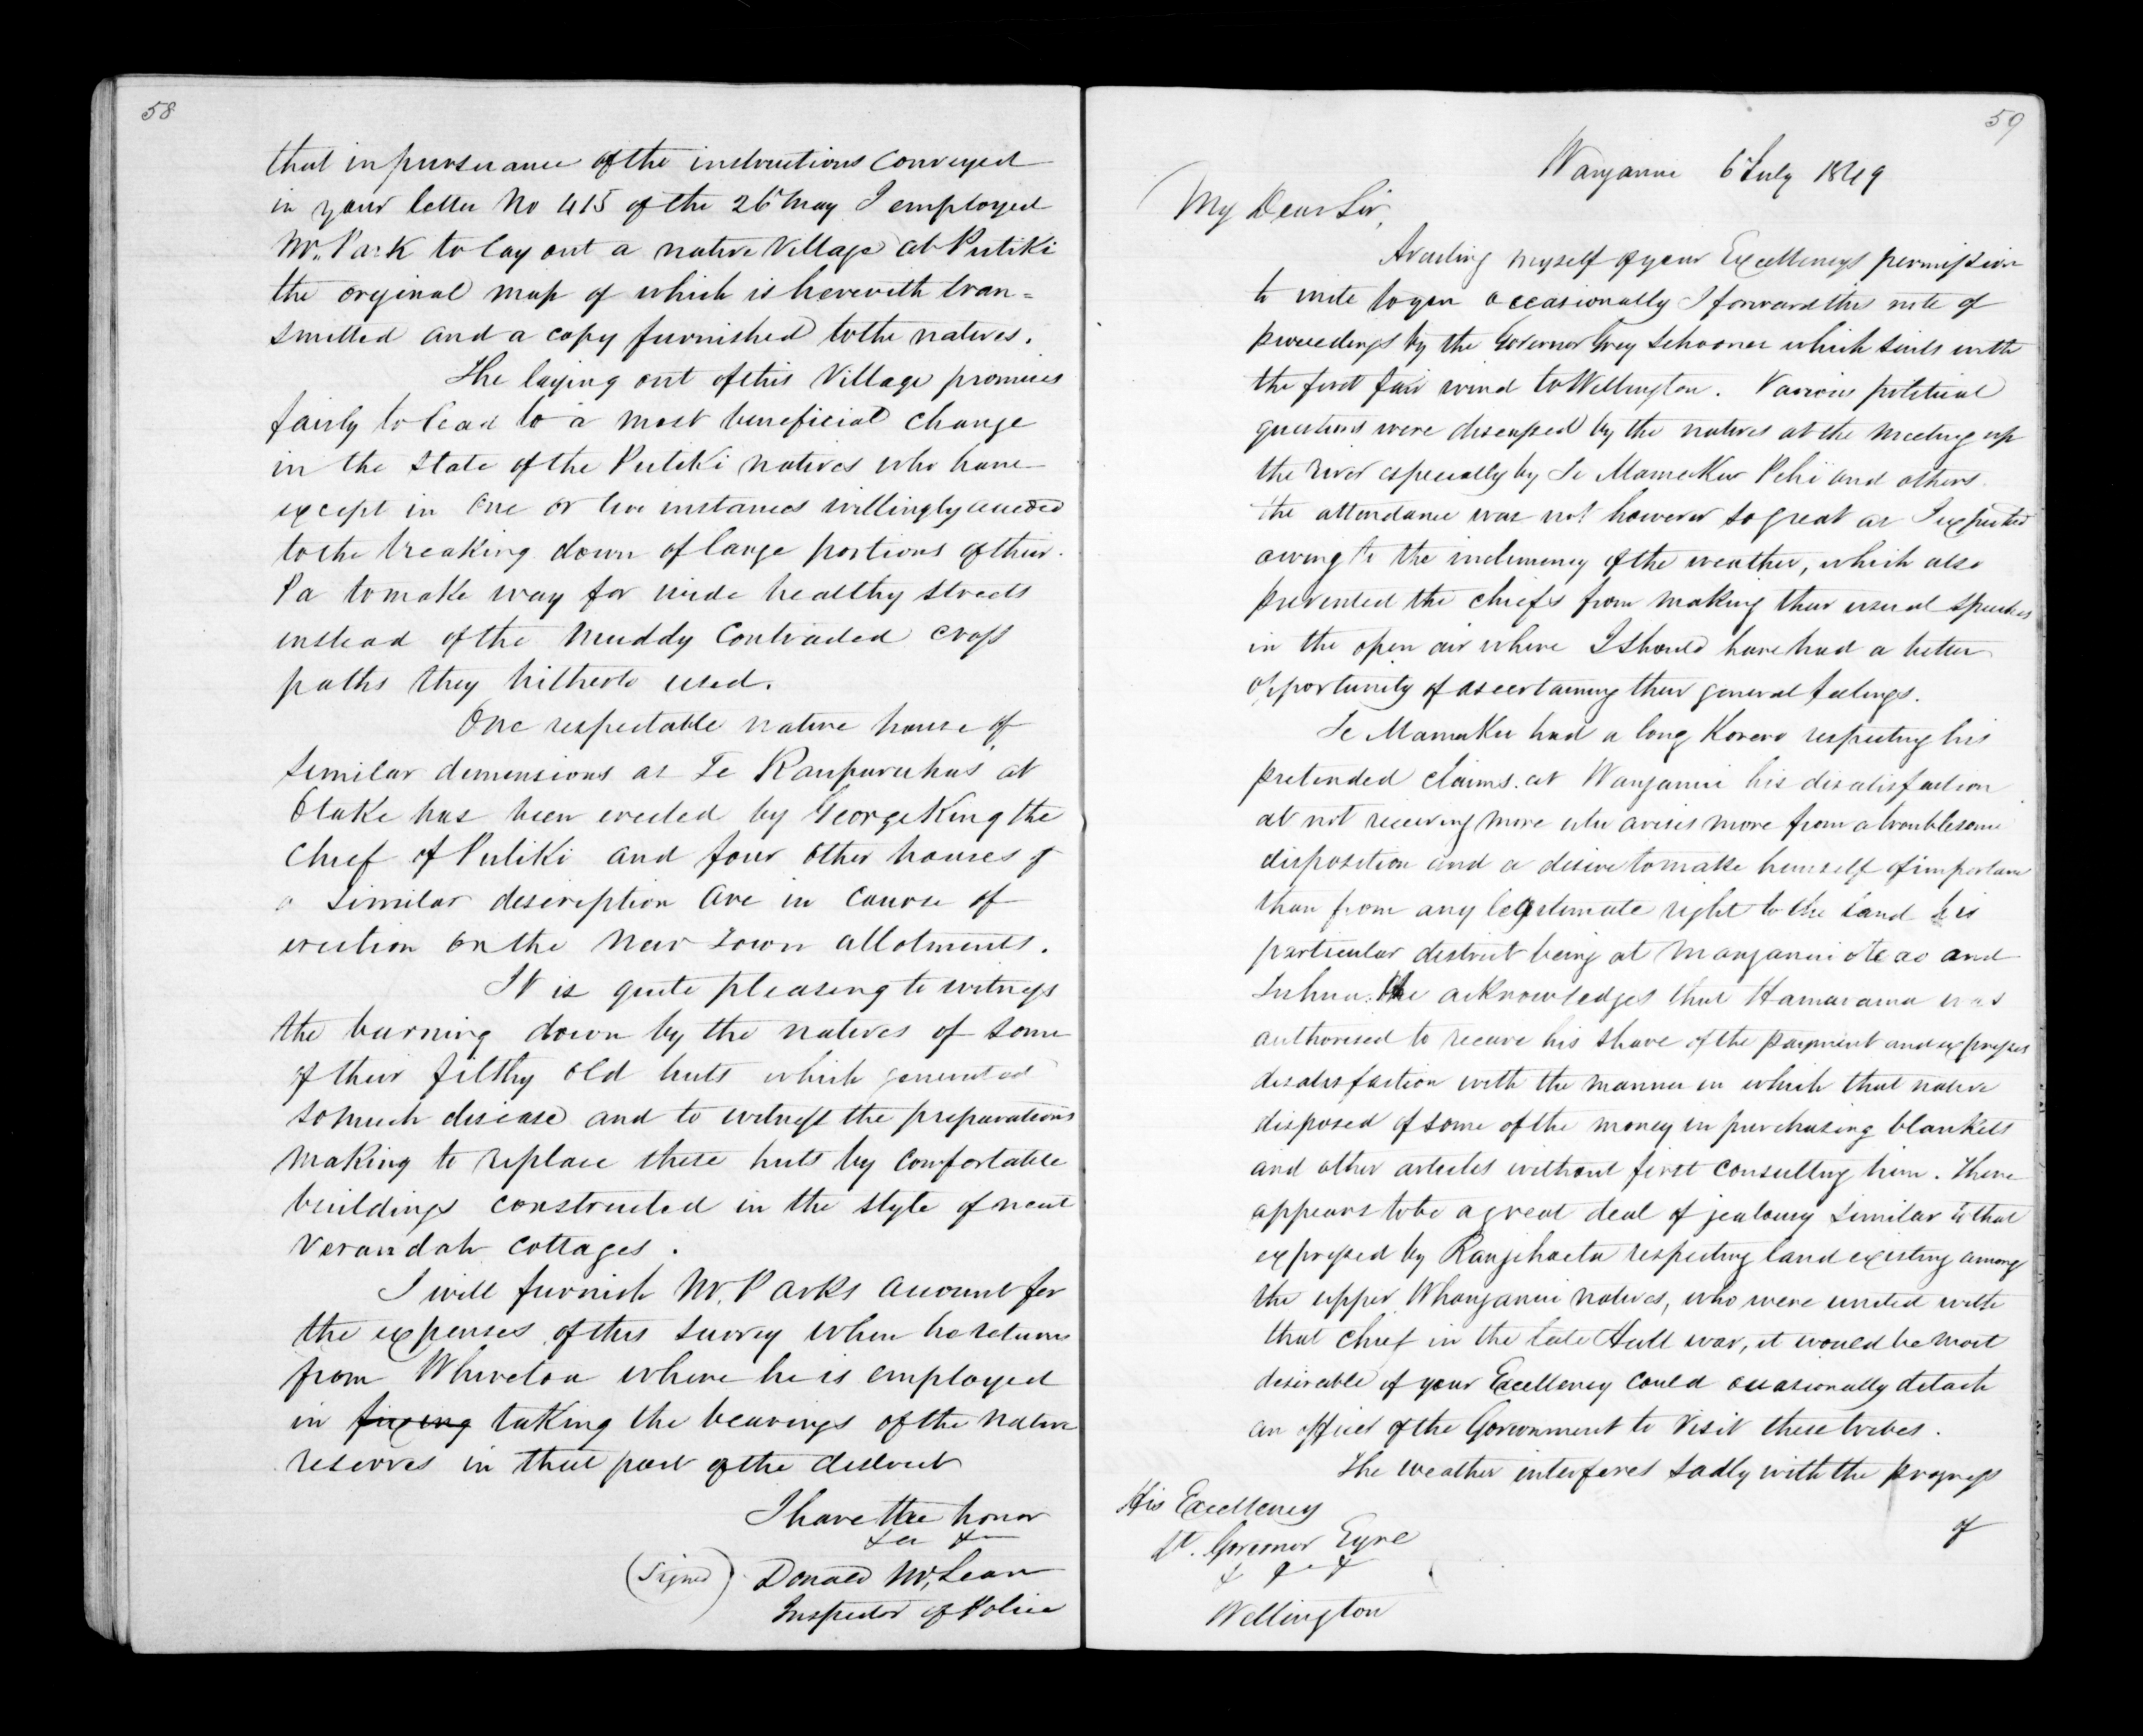 58
that in pursuance of the instructions conveyed
in your letter No 415 of the 26th May I employed
Mr. Park to lay out a native Village at Putiki
the original map of which is herewith tran=
smitted and a copy furnished to the natives.
The laying out of this Village promises
fairly to lead to a most beneficial change
in the state of the Putiki natives who have
except in one or two instances willingly acceded
to the breaking down of large portions of their
Pa to make way for wide healthy streets
instead of the muddy contracted cross
paths they hitherto used.
One respectable native house of
similar dimensions as Te Rauparahas at
Otake has been erected by George King the
chief of Putiki and four other houses of
a similar description are in course of
erection on the new Town allotments.
It is quite pleasing to witness
the burning down by the natives of some
of their filthy old huts which generated
so much disease and to witness the preparations
making to replace these huts by comfortable
buildings constructed in the style of neat
Verandah cottages.
I will furnish Mr. Parks account for
the expenses of this survey when he returns
from Whiretoa where he is employed
in fixing taking the bearings of the native
reserves in that part of the district
I have the honor
&c &c
(signed) Donald McLean
Inspector of Police
59
Wanganui 6 July 1849
My Dear Sir,
Availing myself of your Excellencys permission
to write to you occasionally I forward this note of
proceedings by the Governor Grey Schooner which sails with
the first fair wind to Wellington. Various political
questions were discussed by the natives at the meeting up
the river especially by Te Mamaku Pehi and others.
the attendance was not however so great as I expected
owing to the inclemency of the weather, which also
prevented the chiefs from making their usual speeches
in the open air where I should have had a better
opportunity of ascertaining their general feelings.
Te Mamaku had a long Korero respecting his
pretended claims at Wanganui his disatisfaction
at not receiving more utu arises more from a troublesome
disposition and a desire to make himself of importance
than from any legitimate right to the land his
particular district being at Manganui ote ao and
Tuhua. He acknowledges that Hamarama was
authorised to receive his share of the payment and expresses
disatisfaction with the manner in which that native
disposed of some of the money in purchasing blankets
and other articles without first consulting him. There
appears to be a great deal of jealousy similar to that
expressed by Rangihaeta respecting land existing among
the upper Whanganui natives, who were united with
that chief in the late Hutt war, it would be most
desireable if your Excellency could occasionally detach
an officer of the Government to visit these tribes.
The weather interferes sadly with the progress
of
His Excellency
Lt. Governor Eyre
& & &
Wellington